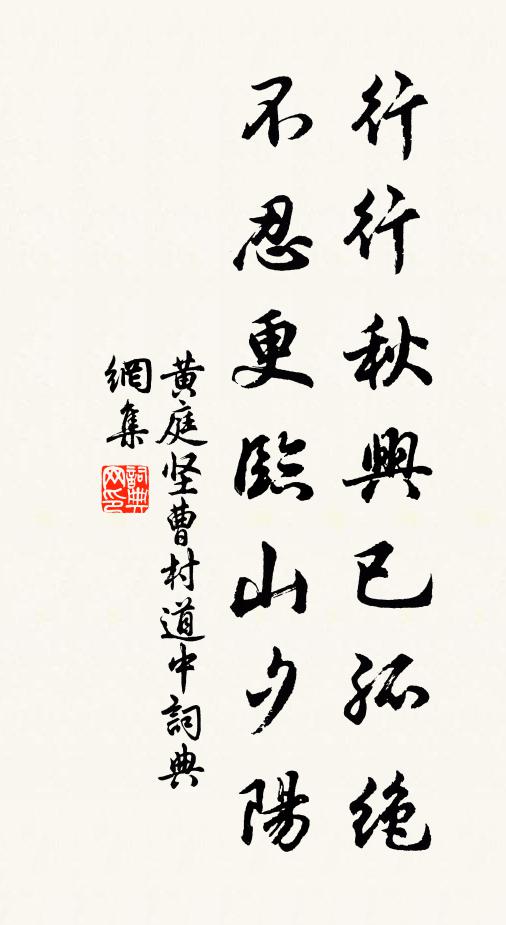 行行秋興已孤绝
不忍更臨山夕陽
黄庭坚曹村道中詞典
網集
詞典
网印